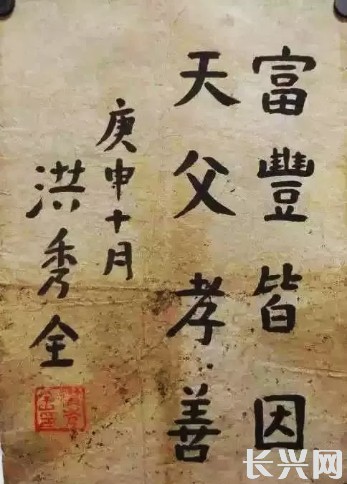 富豐皆因
天父孝善
庚申十月
洪秀全
长兴网